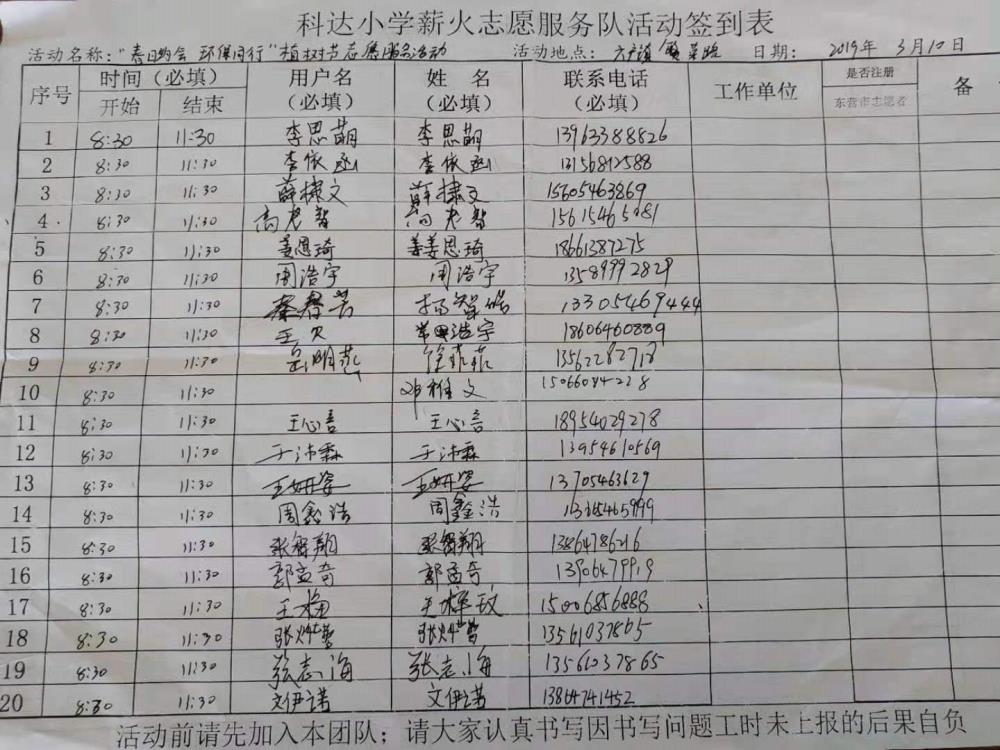 科达小学薪火志愿服务队活动签到表
活动名称："春日约会 环保同行"植树节志愿服务活动 活动地点： 日期：2019年3月10日
序号 时间（必填） 用户名（必填） 姓 名（必填） 联系电话（必填） 工作单位 是否注册 东营市志愿者 备
开始 结束
1 8:30 11:30 李思萌 李思萌 13963388826
2 8:30 11:30 李依函 李依函 13156812588
3 8:30 11:30 薛棣文 薛棣文 15605463869
4 8:30 11:30 高老智 高老智 15615465081
5 8:30 11:30 姜恩琦 姜恩琦 18661387275
6 8:30 11:30 周浩宇 周浩宇 13589992829
7 8:30 11:30 秦春芳 杨智皓 13305469444
8 8:30 11:30 王欠 常浩宇 18606460889
9 8:30 11:30 岳明燕 徐菲菲 13562282718
10 8:30 11:30 邓雅文 15066094228
11 8:30 11:30 王心言 王心言 18954029278
12 8:30 11:30 于沛霖 于沛霖 13954610569
13 8:30 11:30 王妍姿 王妍姿 13705463629
14 8:30 11:30 周鑫浩 周鑫浩
15 8:30 11:30 张智翔 张智翔 13864786216
16 8:30 11:30 郭孟奇 郭孟奇 13906479919
17 8:30 11:30 王梅 15006856888
18 8:30 11:30 13561037865
19 8:30 11:30 张志海 张志海 13561037865
20 8:30 11:30 文伊诺 文伊诺 13864741452
活动前请先加入本团队；请大家认真书写因书写问题工时未上报的后果自负